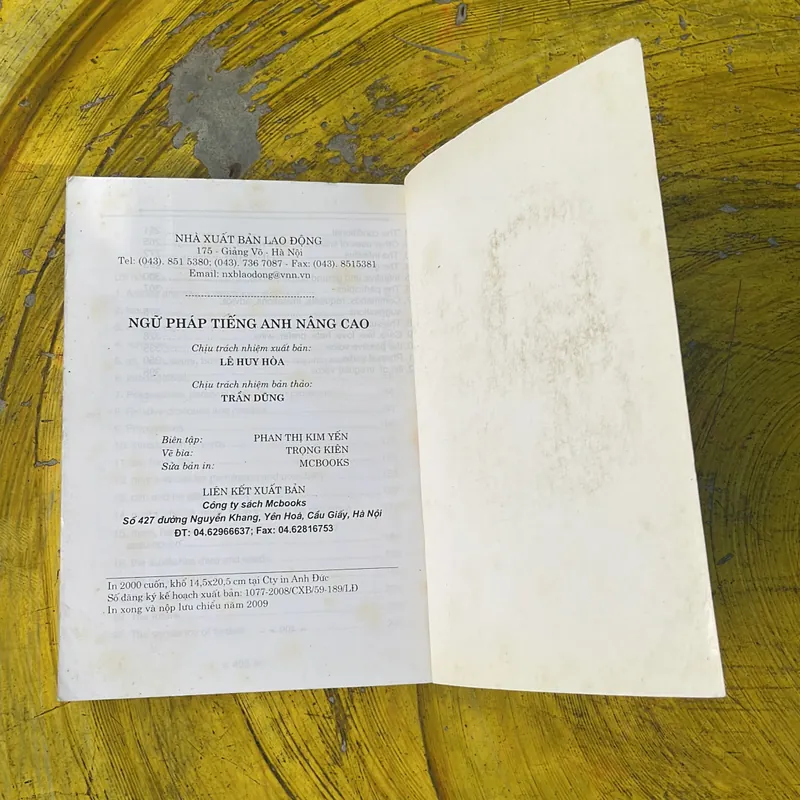 NHÀ XUẤT BẢN LAO ĐỘNG
175 - Giảng Võ - Hà Nội
Tel: (043). 851 5380; (043). 736 7087 - Fax: (043). 8515381
Email: nxblaodong@vnn.vn
NGỮ PHÁP TIẾNG ANH NÂNG CAO
Chịu trách nhiệm xuất bản:
LÊ HUY HÒA
Chịu trách nhiệm bản thảo:
TRẦN DŨNG
Biên tập: PHAN THỊ KIM YẾN
Vẽ bìa: TRỌNG KIÊN
Sửa bản in: MCBOOKS
LIÊN KẾT XUẤT BẢN
Công ty sách Mcbooks
Số 427 đường Nguyễn Khang, Yên Hoà, Cầu Giấy, Hà Nội
ĐT: 04.62966637; Fax: 04.62816753
In 2000 cuốn, khổ 14,5x20,5 cm tại Cty in Anh Đức
Số đăng ký kế hoạch xuất bản: 1077-2008/CXB/59-189/LĐ
In xong và nộp lưu chiểu năm 2009